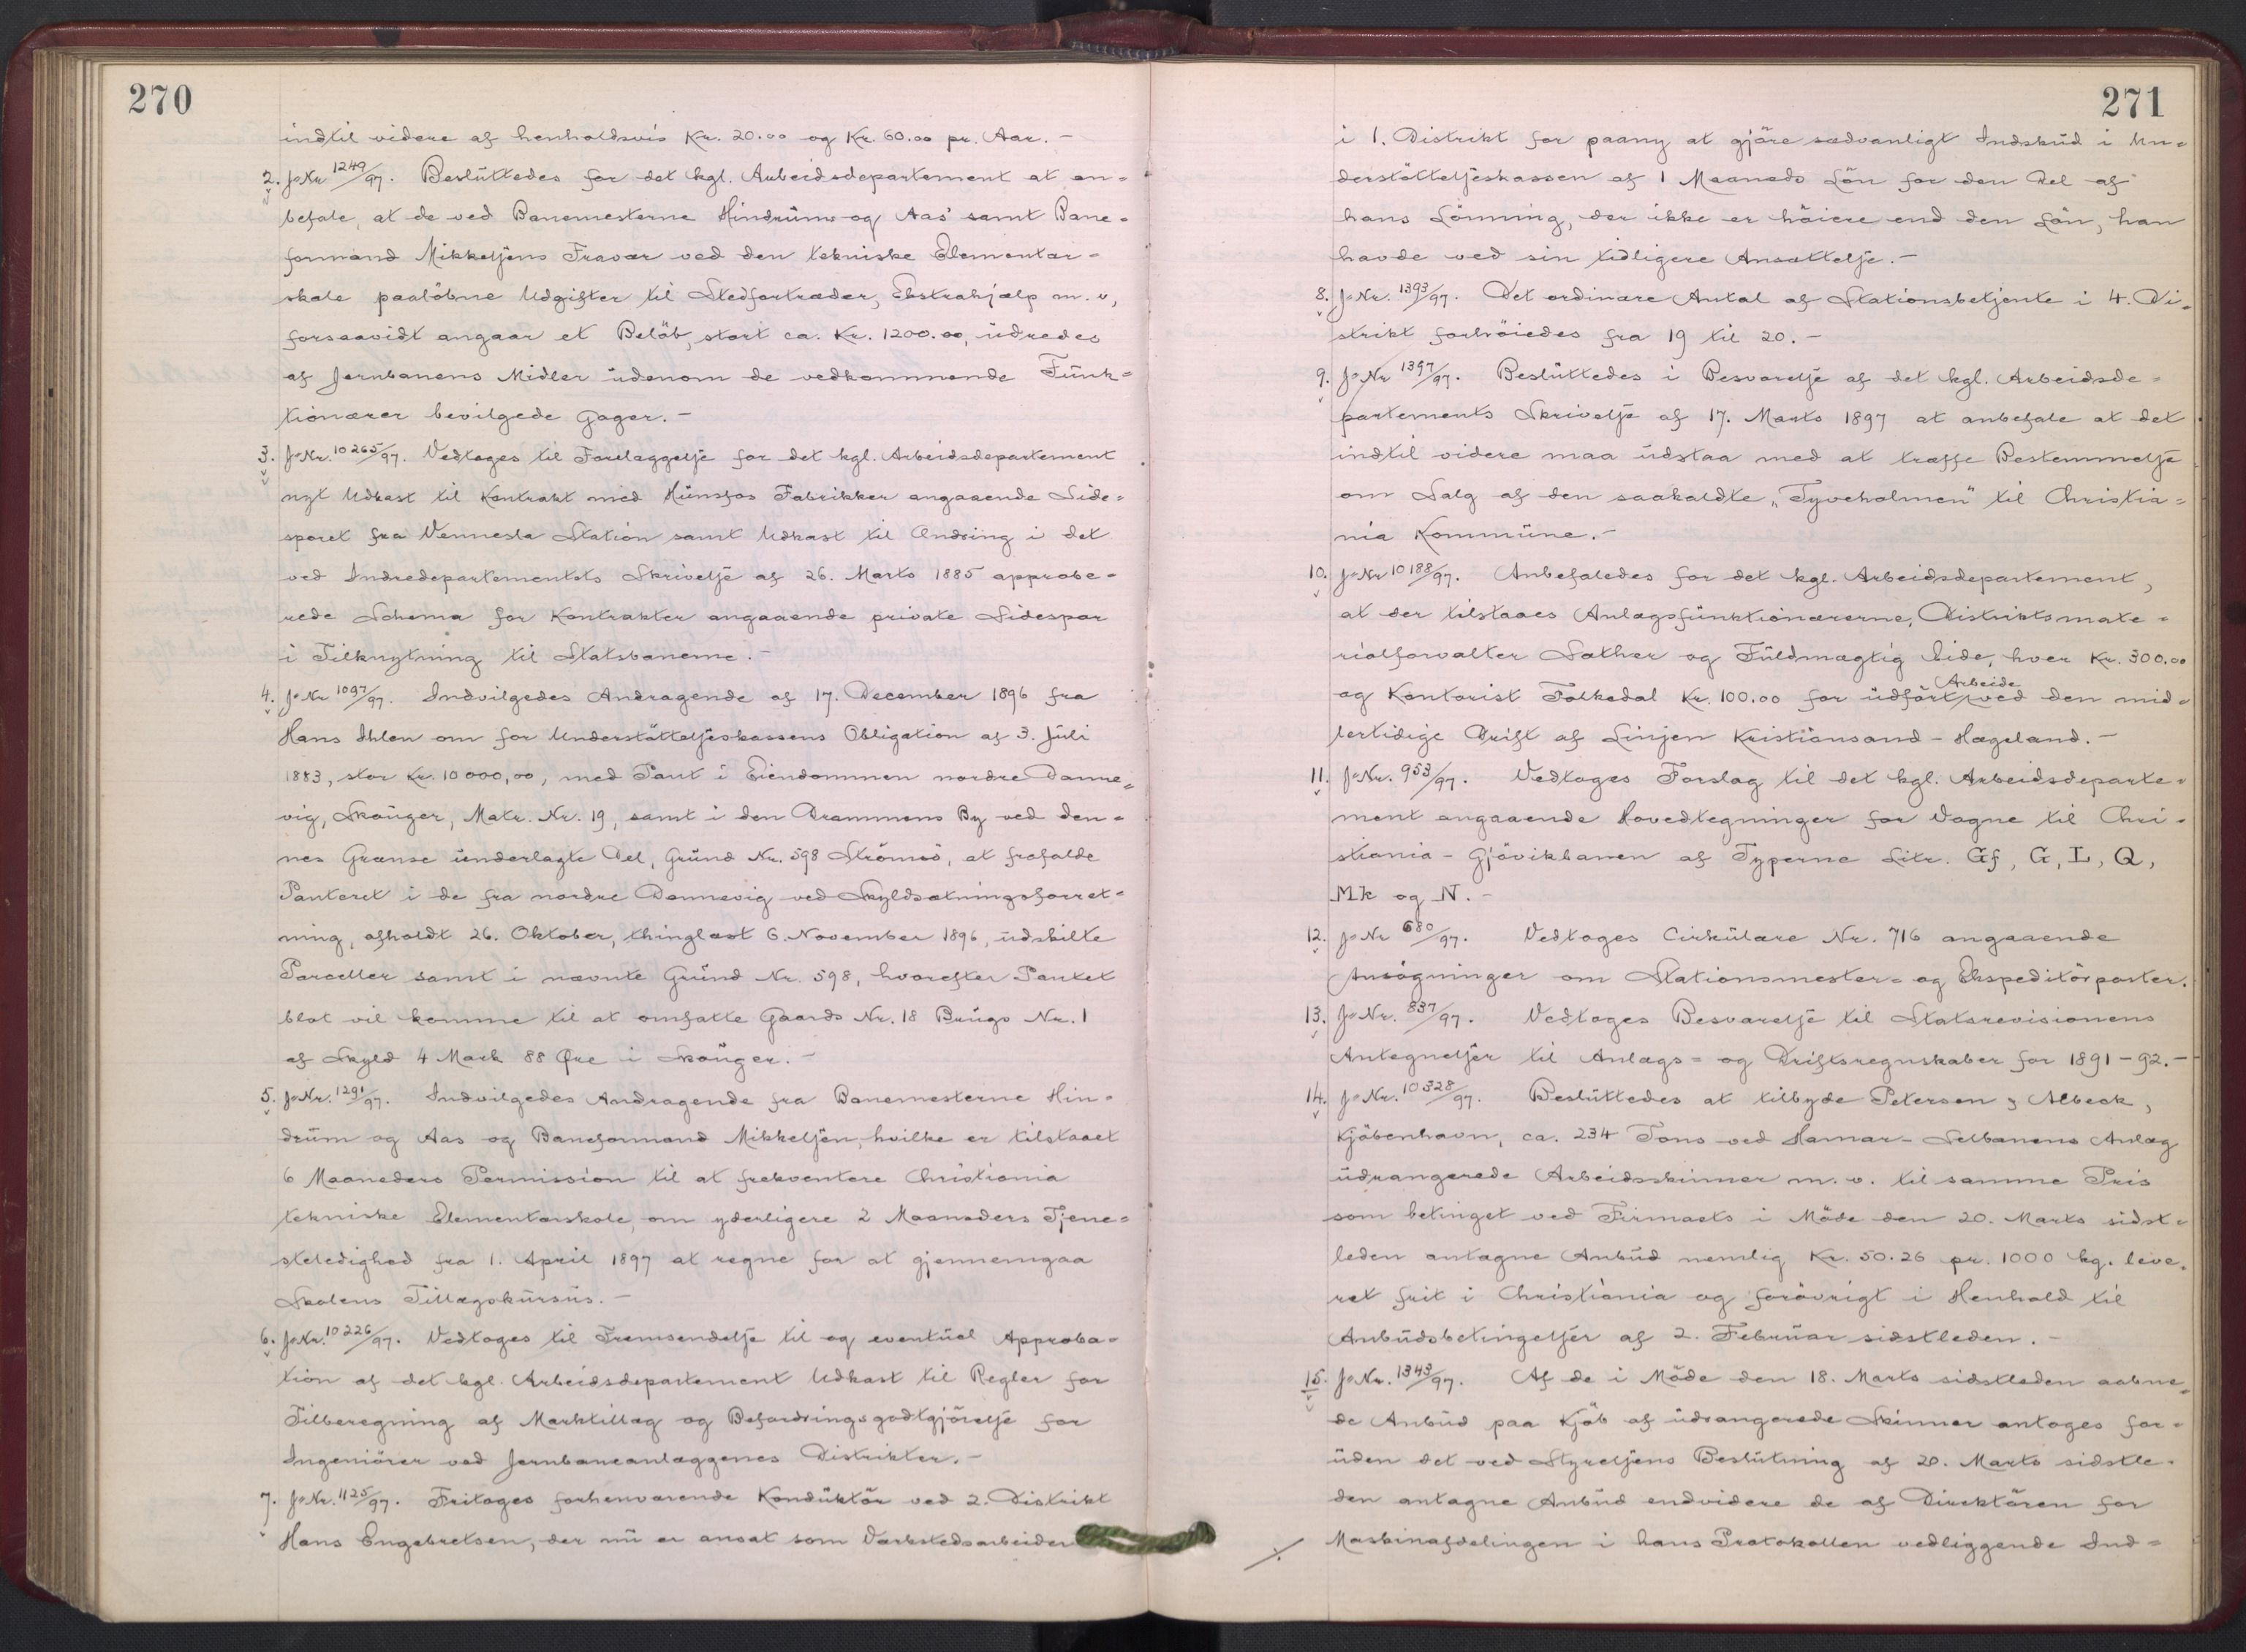 270
indtil videre af henholdsvis Kr. 20.00 og Kr. 60.00 pr. Aar. –
2. J.Nr. 1249/97. Beslüttedes for det kgl. Arbeidsdepartement at an=
befale, at de ved Banemesterne Hindrüms og Aas' samt Bane=
formand Mikkelsens Fravær ved den tekniske Elementar=
skole paaløbne Udgifter til Stedfortræder, Ekstrahjælp m. v,
forsaavidt angaar et Beløb, stort ca. Kr. 1200.00, üdredes
af Jernbanens Midler üdenom de vedkommende Fünk=
tionærer bevilgede Gager. –
3. J.Nr. 10265/97. Vedtoges til Forelæggelse for det kgl. Arbeidsdepartement
nyt Udkast til Kontrakt med Hünsfos Fabrikker angaaende Side=
sporet fra Vennesla Station samt Udkast til Ændring i det
ved Indredepartementets Skrivelse af 26. Marts 1885 approbe=
rede Schema for Kontrakter angaaende private Sidespor
i Tilknytning til Statsbanerne. –
4. J.Nr. 1097/97. Indvilgedes Andragende af 17. December 1896 fra
Hans Ihlen om for Understøttelseskassens Obligation af 3. Jüli
1883, stor Kr. 10000,00, med Pant i Eiendommen nordre Danne=
vig, Skoüger, Matr. Nr. 19, samt i den Drammens By ved den=
nes Grænse ünderlagte Del, Gründ Nr. 598 Strömsö, at frafalde
Panteret i de fra nordre Dannevig ved Skyldsætningsforret=
ning, afholdt 26. Oktober, thinglæst 6. November 1896, üdskilte
Parceller samt i nævnte Gründ Nr. 598, hvorefter Pantet
blot vil komme til at omfatte Gaards Nr. 18 Brügs Nr. 1
af Skyld 4 Mark 88 Øre i Skoüger. –
5. J.Nr. 1291/97. Indvilgedes Andragende fra Banemesterne Hin=
drüm og Aas og Baneformand Mikkelsen, hvilke er tilstaaet
6 Maaneders Permission til at frekventere Christiania
tekniske Elementarskole, om yderligere 2 Maaneders Tjene=
steledighed fra 1. April 1897 at regne for at gjennemgaa
Skolens Tillægskürsüs. –
6. J.Nr. 10226/97. Vedtoges til Fremsendelse til og eventüel Approba=
tion af det kgl. Arbeidsdepartement Udkast til Regler for
Tilberegning af Marktillæg og Befordringsgodtgjörelse for
Ingeniörer ved Jernbaneanlæggenes Distrikter. –
7. J.Nr. 1125/97. Fritoges forhenværende Kondüktör ved 2. Distrikt
Hans Engebretsen, der nü er ansat som Værkstedsarbeider
271
i 1. Distrikt for paany at gjöre sædvanligt Indsküd i Un=
derstöttelseskassen af 1 Maaneds Lön for den Del af
hans Lönning, der ikke er höiere end den Lön, han
havde ved sin tidligere Ansættelse. –
8. J.Nr. 1393/97. Det ordinære Antal af Stationsbetjente i 4. Di=
strikt forhöiedes fra 19 til 20. –
9. J.Nr 1397/97. Beslüttedes i Besvarelse af det kgl. Arbeidsde=
partements Skrivelse af 17. Marts 1897 at anbefale at det
indtil videre maa üdstaa med at træffe Bestemmelse
om Salg af den saakaldte „Tyveholmen" til Christia=
nia Kommüne. –
10. J.Nr 10188/97. Anbefaledes for det kgl. Arbeidsdepartement,
at der tilstaaes Anlægsfünktionærerne, Distriktsmate=
rialforvalter Sæther og Füldmægtig Eide, hver Kr. 300.00
og Kontorist Folkedal Kr. 100.00 for üdfört Arbeide ved den mid=
lertidige Drift af Linjen Kristiansand – Hægeland. –
11. J.Nr. 953/97. Vedtoges Forslag til det kgl. Arbeidsdeparte=
ment angaaende Hovedtegninger for Vogne til Chri=
stiania – Gjövikbanen af Typerne Litr. Gf, G, L, Q,
Mk og N. –
12. J.Nr 680/97. Vedtoges Cirkülære Nr. 716 angaaende
Ansögninger om Stationsmester= og Ekspeditörposter.
13. J.Nr. 837/97. Vedtoges Besvarelse til Statsrevisionens
Antegnelser til Anlægs= og Driftsregnskaber for 1891 – 92. –
14. J.Nr. 10328/97. Beslüttedes at tilbyde Petersen & Albeck,
Kjöbenhavn, ca. 234 Tons ved Hamar – Selbanens Anlæg
üdrangerede Arbeidsskinner m. v. til samme Pris
som betinget ved Firmaets i Möde den 20. Marts sidst=
leden antagne Anbüd nemlig Kr. 50.26 pr. 1000 kg. leve=
ret frit i Christiania og forövrigt i Henhold til
Anbüdsbetingelser af 2. Februar sidstleden. –
15. J.Nr. 1343/97. Af de i Möde den 18. Marts sidstleden aabne=
de Anbüd paa Kjöb af üdrangerede Skinner antoges for=
üden det ved Styrelsens Beslütning af 20. Marts sidstle=
den antagne Anbüd endvidere de af Direktören for
Maskinafdelingen i hans Protokollen vedliggende Ind=